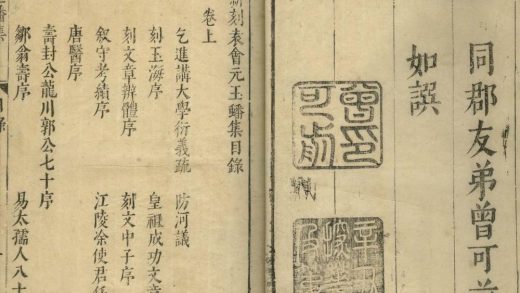 同郡友弟曾可前
如譔
曾印可前
新刻袁會元玉蟠集目錄
卷上
乞進講大學衍義疏 防河議
刻玉海序 皇祖成功文章
刻文章辯體序 刻文中子序
敘守考績序 江陵徐使君任
唐醫序
壽封公龍川郭公七十序
鄒翁壽序 易太孺人八十
蟠集 目錄